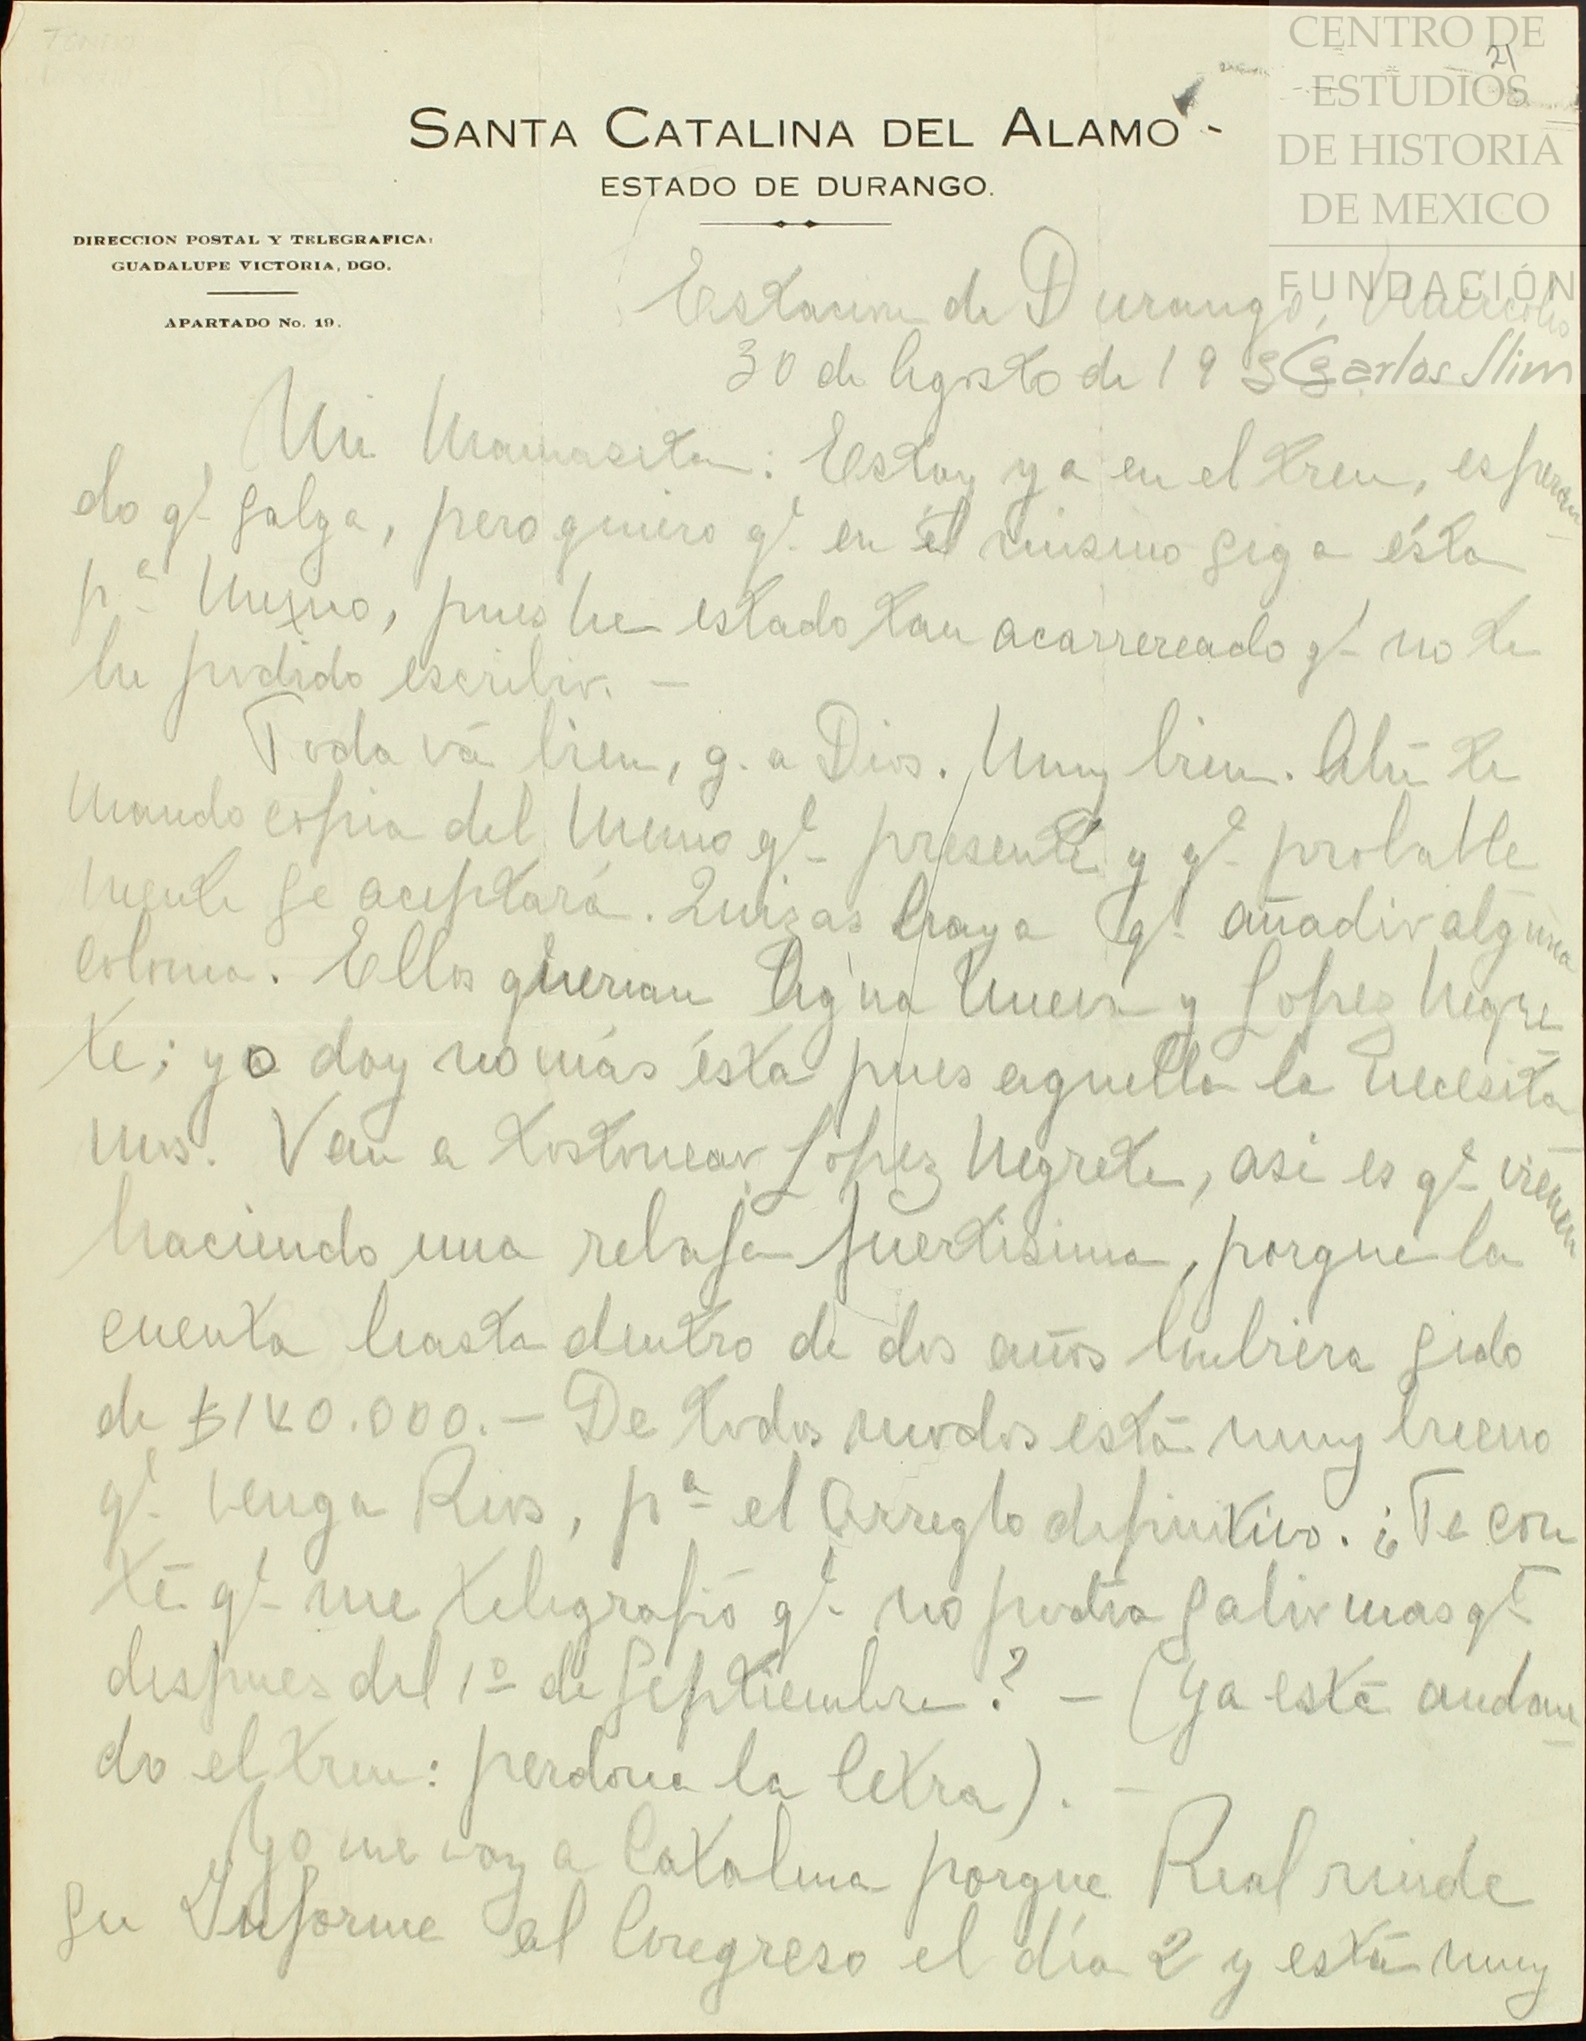 CENTRO DE
ESTUDIOS
DE HISTORIA
DE MEXICO
FUNDACIÓN
Carlos Slim
21
SANTA CATALINA DEL ALAMO
ESTADO DE DURANGO.
DIRECCION POSTAL Y TELEGRAFICA:
GUADALUPE VICTORIA, DGO.
APARTADO No. 19.
Estacion de Durango, Miercoles
30 de Agosto de 19
Mi Mamasita: Estoy ya en el tren, esperan
do q.e salga, pero quiero q.e en él mismo siga ésta
p.a Mexico, pues he estado tan acarrereado q.e no te
he podido escribir. —
Todo vá bien, g. a Dios. Muy bien. Ahí te
mando copia del Memo q.e presenté y q.e probable
mente se aceptará. Quizas haya q.e añadir alguna
colonia. Ellos querian Agua Nueva y Lopez Negre
te; yo doy no más ésta pues aquella la necesita
mos. Van a tostonear Lopez Negrete, asi es q.e vienen
haciendo una rebaja fuertisima, porque la
cuenta hasta dentro de dos años hubiera sido
de $140.000. — De todos modos está muy bueno
q.e venga Rios, p.a el arreglo definitivo. ¿Te con
té q.e me telegrafió q.e no podia salir mas q.e
despues del 1º de Septiembre? — (Ya está andan
do el tren: perdona la letra). —
Yo me voy a Catalina porque Real rinde
su Informe al Congreso el día 2 y está muy